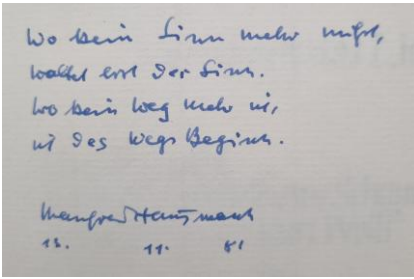 Wo kein Sinn mehr mißt,
waltet erst der Sinn.
Wo kein Weg mehr ist,
ist des Wegs Beginn.
Manfred Hausmann
13. 11. 81